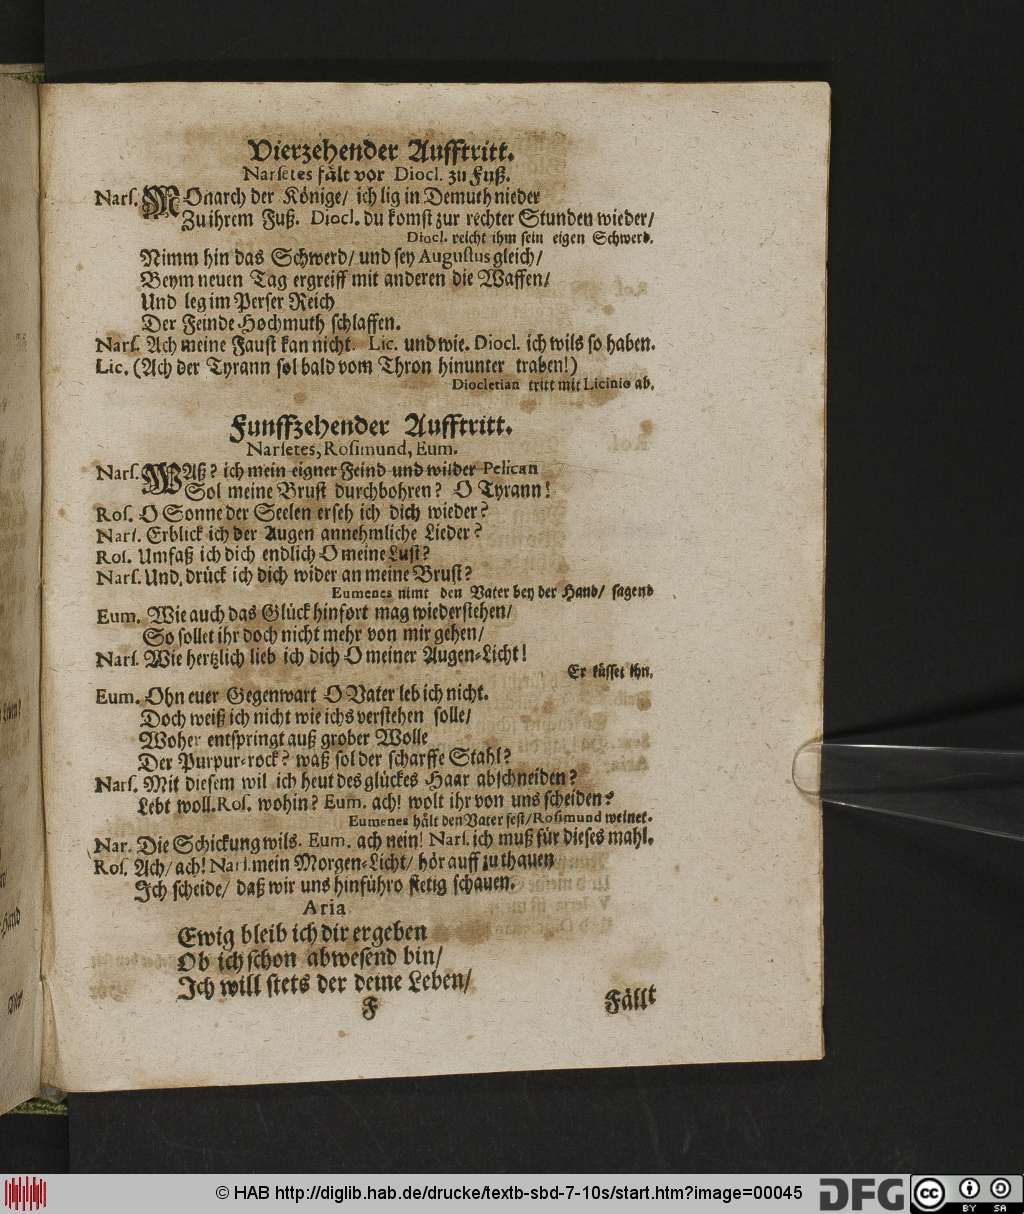 Vierzehender Aufftritt.
Narsetes fält vor Diocl. zu Fuß.
Nars. MOnarch der Könige/ ich lig in Demuth nieder
Zu ihrem Fuß. Diocl. du komst zur rechter Stunden wieder/
Diocl. reicht ihm sein eigen Schwerd.
Nimm hin das Schwerd/ und sey Augustus gleich/
Beym neuen Tag ergreiff mit anderen die Waffen/
Und leg im Perser Reich
Der Feinde Hochmuth schlaffen.
Nars. Ach meine Faust kan nicht. Lic. und wie. Diocl. ich wils so haben.
Lic. (Ach der Tyrann sol bald vom Thron hinunter traben!)
Diocletian tritt mit Licinio ab.
Funffzehender Aufftritt.
Narsetes, Rosimund, Eum.
Nars. WAß? ich mein eigner Feind und wilder Pelican
Sol meine Brust durchbohren? O Tyrann!
Ros. O Sonne der Seelen erseh ich dich wieder?
Nars. Erblick ich der Augen annehmliche Lieder?
Ros. Umfaß ich dich endlich O meine Lust?
Nars. Und, drück ich dich wider an meine Brust?
Eumenes nimt den Vater bey der Hand/ sagend
Eum. Wie auch das Glück hinfort mag wiederstehen/
So sollet ihr doch nicht mehr von mir gehen/
Nars. Wie hertzlich lieb ich dich O meiner Augen-Licht!
Er küsset ihn.
Eum. Ohn euer Gegenwart O Vater leb ich nicht.
Doch weiß ich nicht wie ichs verstehen solle/
Woher entspringt auß grober Wolle
Der Purpur-rock? waß sol der scharffe Stahl?
Nars. Mit diesem wil ich heut des glückes Haar abschneiden?
Lebt woll. Ros. wohin? Eum. ach! wolt ihr von uns scheiden?
Eumenes hält den Vater fest/ Rosimund weinet.
Nar. Die Schickung wils. Eum. ach nein! Nars. ich muß für dieses mahl.
Ros. Ach/ ach! Nars. mein Morgen-Licht/ hör auff zu thauen
Ich scheide/ daß wir uns hinführo stetig schauen.
Aria
Ewig bleib ich dir ergeben
Ob ich schon abwesend bin/
Ich will stets der deine Leben/
F
Fällt
© HAB http://diglib.hab.de/drucke/textb-sbd-7-10s/start.htm?image=00045
DFG
cc
BY SA